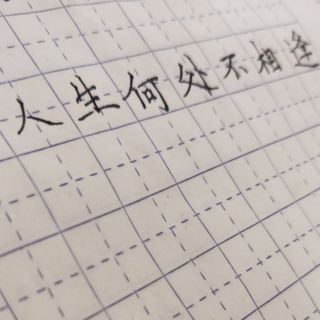 人生何处不相逢